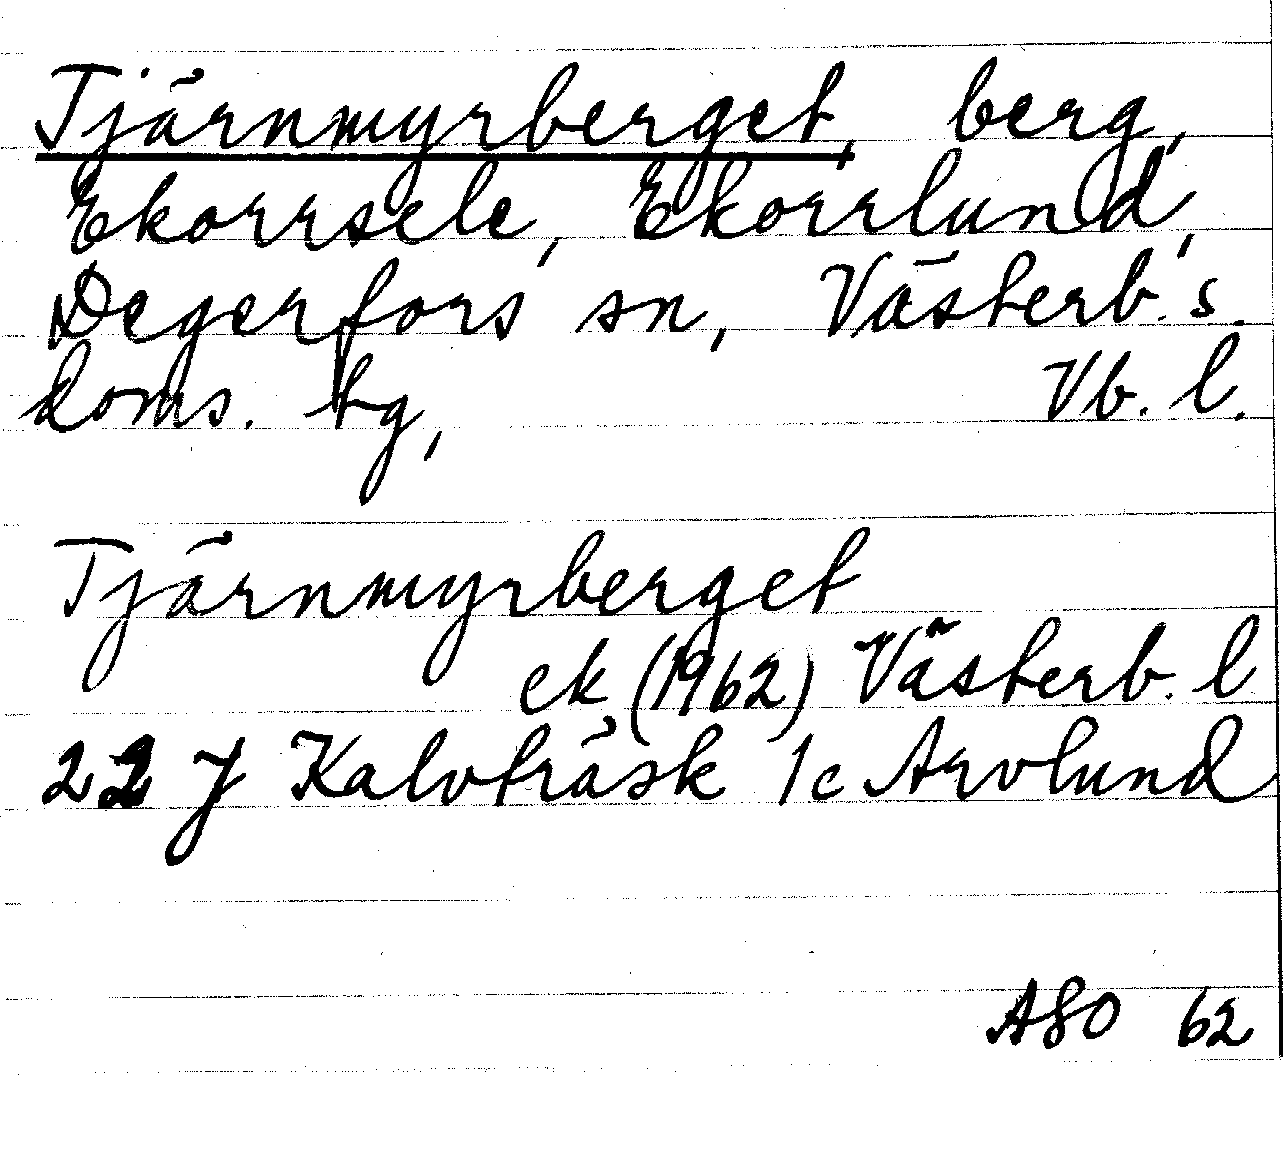 Tjärnmyrberget, berg,
Ekorrsele, Ekorrlund,
Degerfors sn, Västerb. s.
doms. tg, Vb. l.
Tjärnmyrberget
ek (1962) Västerb. l
22 J Kalvträsk 1c Arvlund
ASO 62